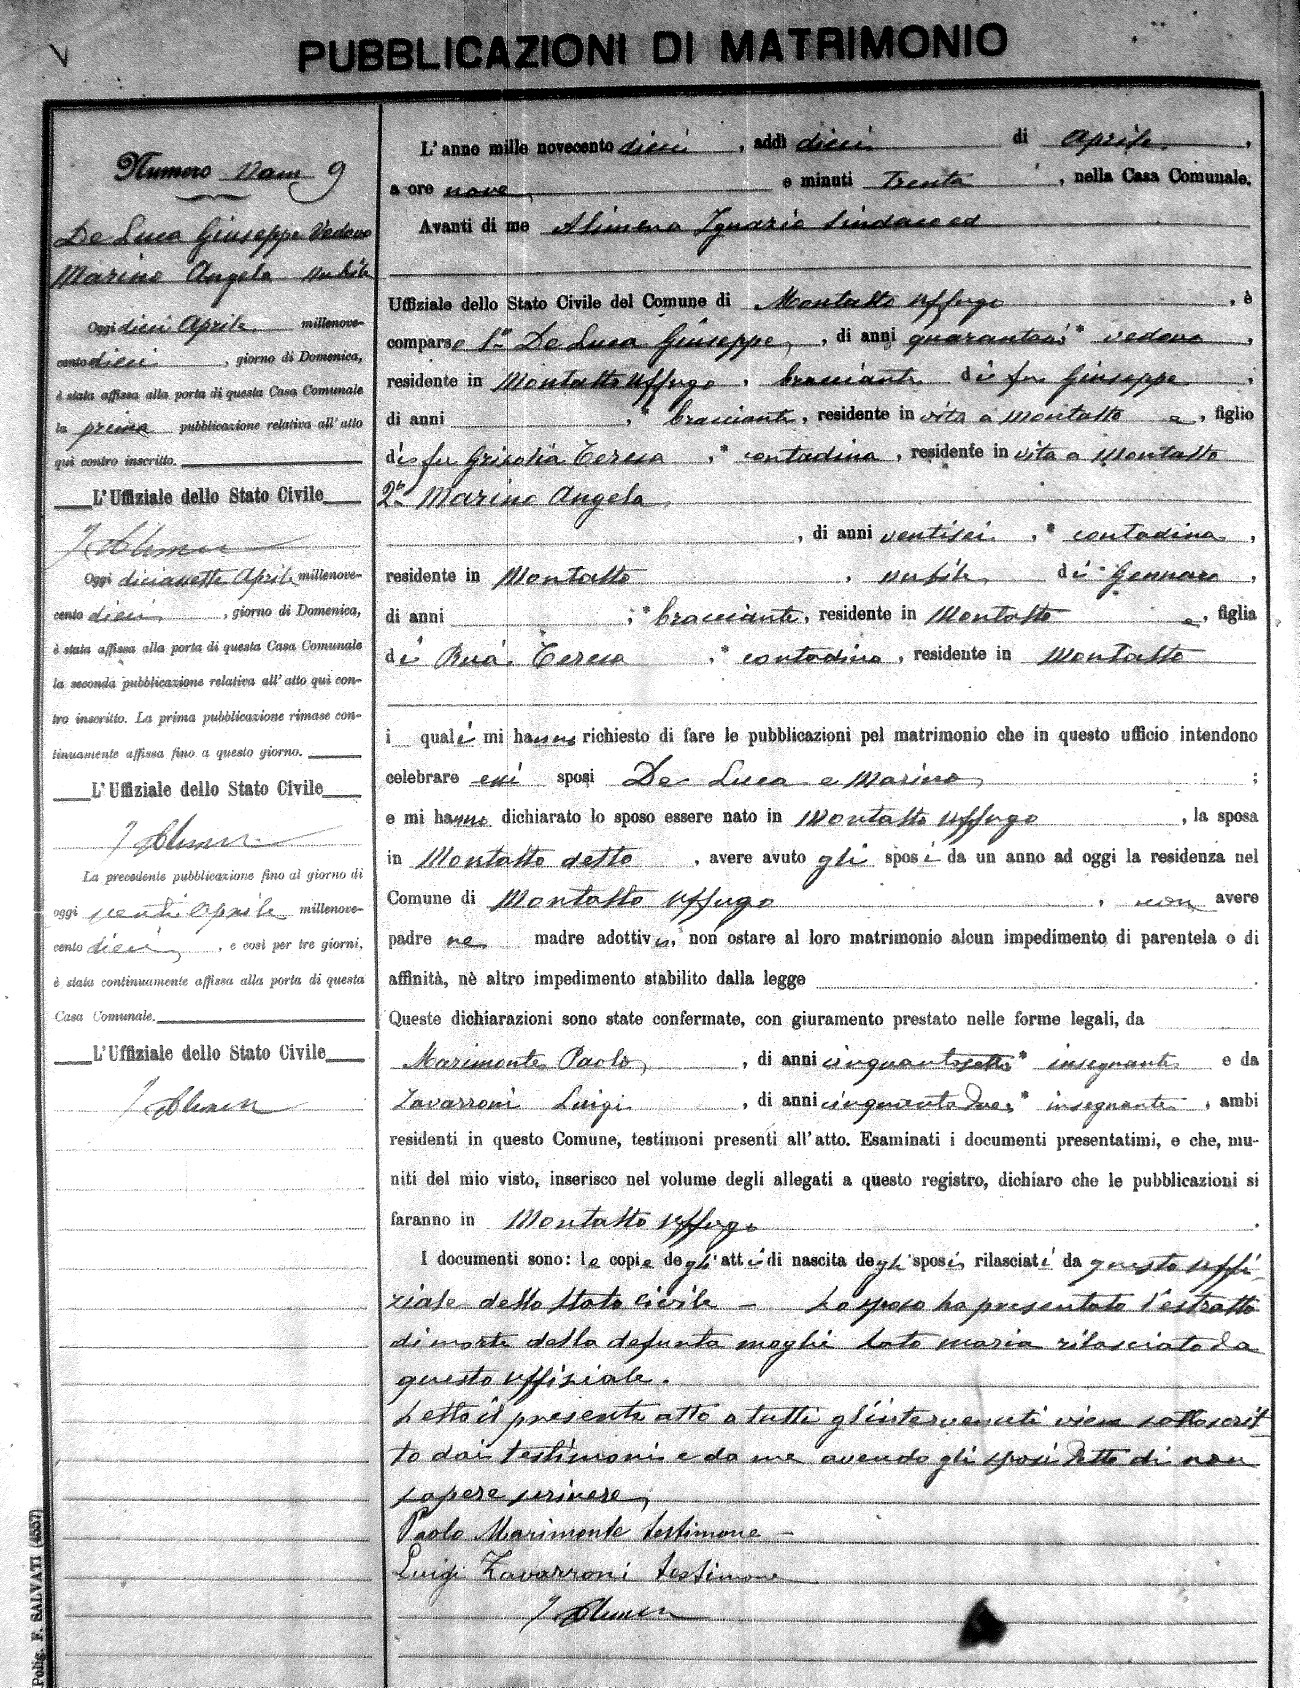 V
PUBBLICAZIONI DI MATRIMONIO
Numero 9
De Luca Giuseppe Vedovo
Marino Angela nubile
Oggi dieci Aprile millenove-
cento dieci, giorno di Domenica,
è stata affissa alla porta di questa Casa Comunale
la prima pubblicazione relativa all'atto
qui contro inscritto.
L'Uffiziale dello Stato Civile
Oggi diciasette Aprile millenove-
cento dieci, giorno di Domenica,
è stata affissa alla porta di questa Casa Comunale
la seconda pubblicazione relativa all'atto qui con-
tro inscritto. La prima pubblicazione rimase con-
tinuamente affissa fino a questo giorno.
L'Uffiziale dello Stato Civile
La precedente pubblicazione fino al giorno di
oggi venti Aprile millenove-
cento dieci, e così per tre giorni,
è stata continuamente affissa alla porta di questa
Casa Comunale.
L'Uffiziale dello Stato Civile
Polig. F. SALVATI (4557)
L'anno mille novecento dieci, addì dieci di Aprile,
a ore nove, e minuti Trenta, nella Casa Comunale.
Avanti di me Alimena Ignazio Sindaco ed
Uffiziale dello Stato Civile del Comune di Montalto Uffugo, è
comparso 1° De Luca Giuseppe, di anni * vedovo,
residente in Montalto Uffugo, bracciante di fu Giuseppe,
di anni , * bracciante, residente in vita a Montalto e, figlio
di fu Grisolia Teresa, * contadina, residente in vita a Montalto
2a Marino Angela
, di anni ventisei, * contadina,
residente in Montalto, nubile di Gennaro,
di anni ; * bracciante, residente in Montalto e, figlia
di Ruà Teresa, * contadina, residente in Montalto
i quali mi hanno richiesto di fare le pubblicazioni pel matrimonio che in questo ufficio intendono
celebrare essi sposi De Luca e Marino;
e mi hanno dichiarato lo sposo essere nato in Montalto Uffugo, la sposa
in Montalto detto, avere avuto gli sposi da un anno ad oggi la residenza nel
Comune di Montalto Uffugo, non avere
padre ne madre adottivi, non ostare al loro matrimonio alcun impedimento di parentela o di
affinità, nè altro impedimento stabilito dalla legge.
Queste dichiarazioni sono state confermate, con giuramento prestato nelle forme legali, da
Marimonte Paolo, di anni cinquantasette * insegnante e da
Zavarroni Luigi, di anni cinquantadue, * insegnante, ambi
residenti in questo Comune, testimoni presenti all'atto. Esaminati i documenti presentatimi, e che, mu-
niti del mio visto, inserisco nel volume degli allegati a questo registro, dichiaro che le pubblicazioni si
faranno in Montalto Uffugo.
I documenti sono: le copie degli atti di nascita degli sposi, rilasciati da questo uffi-
ziale dello Stato Civile – Lo sposo ha presentato l'estratto
di morte della defunta moglie Lato Maria rilasciato da
questo uffiziale.
Letto il presente atto a tutti gl'intervenuti viene sottoscrit
to dai testimoni e da me avendo gli sposi detto di non
sapere scrivere,
Paolo Marimonte testimone –
Luigi Zavarroni testimone